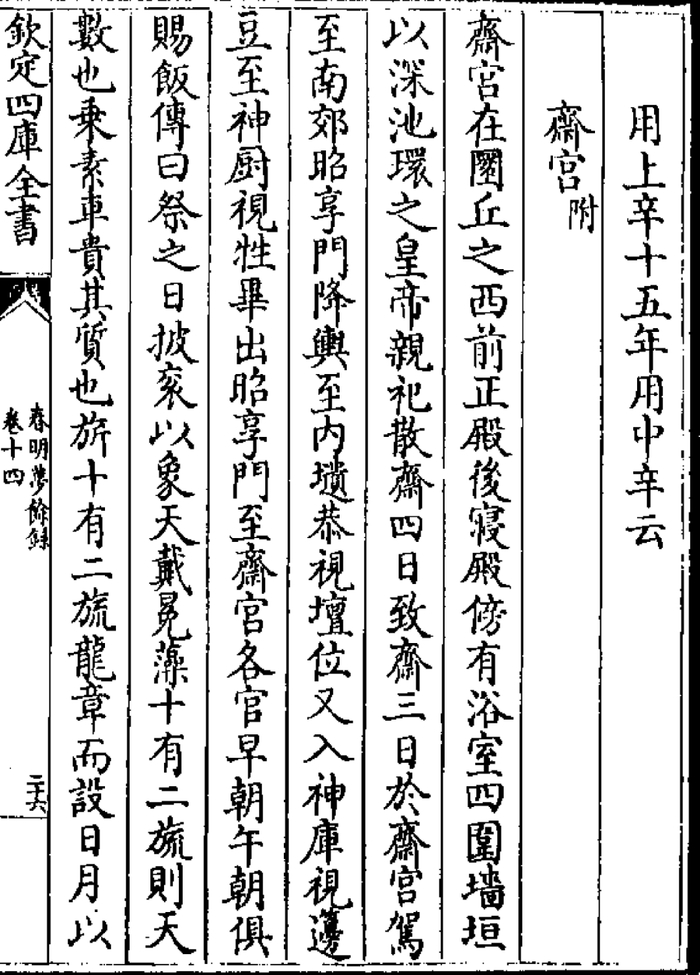 用上辛十五年用中辛云
齋宮附
齋宮在圜丘之西前正殿後寢殿傍有浴室四圍墻垣
以深池環之皇帝親祀散齋四日致齋三日於齋宮駕
至南郊昭享門降輿至内壝恭視壇位又入神庫視籩
豆至神厨視牲畢出昭享門至齋宮各官早朝午朝俱
賜飯傳曰祭之日披衮以象天戴冕藻十有二旒則天
數也乘素車貴其質也旂十有二旒龍章而設日月以
欽定四庫全書
春明夢餘録
卷十四
二十六